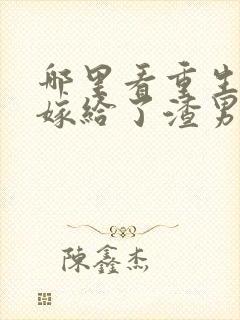 哪里看重生
嫁给了渣男
陳鑫杰